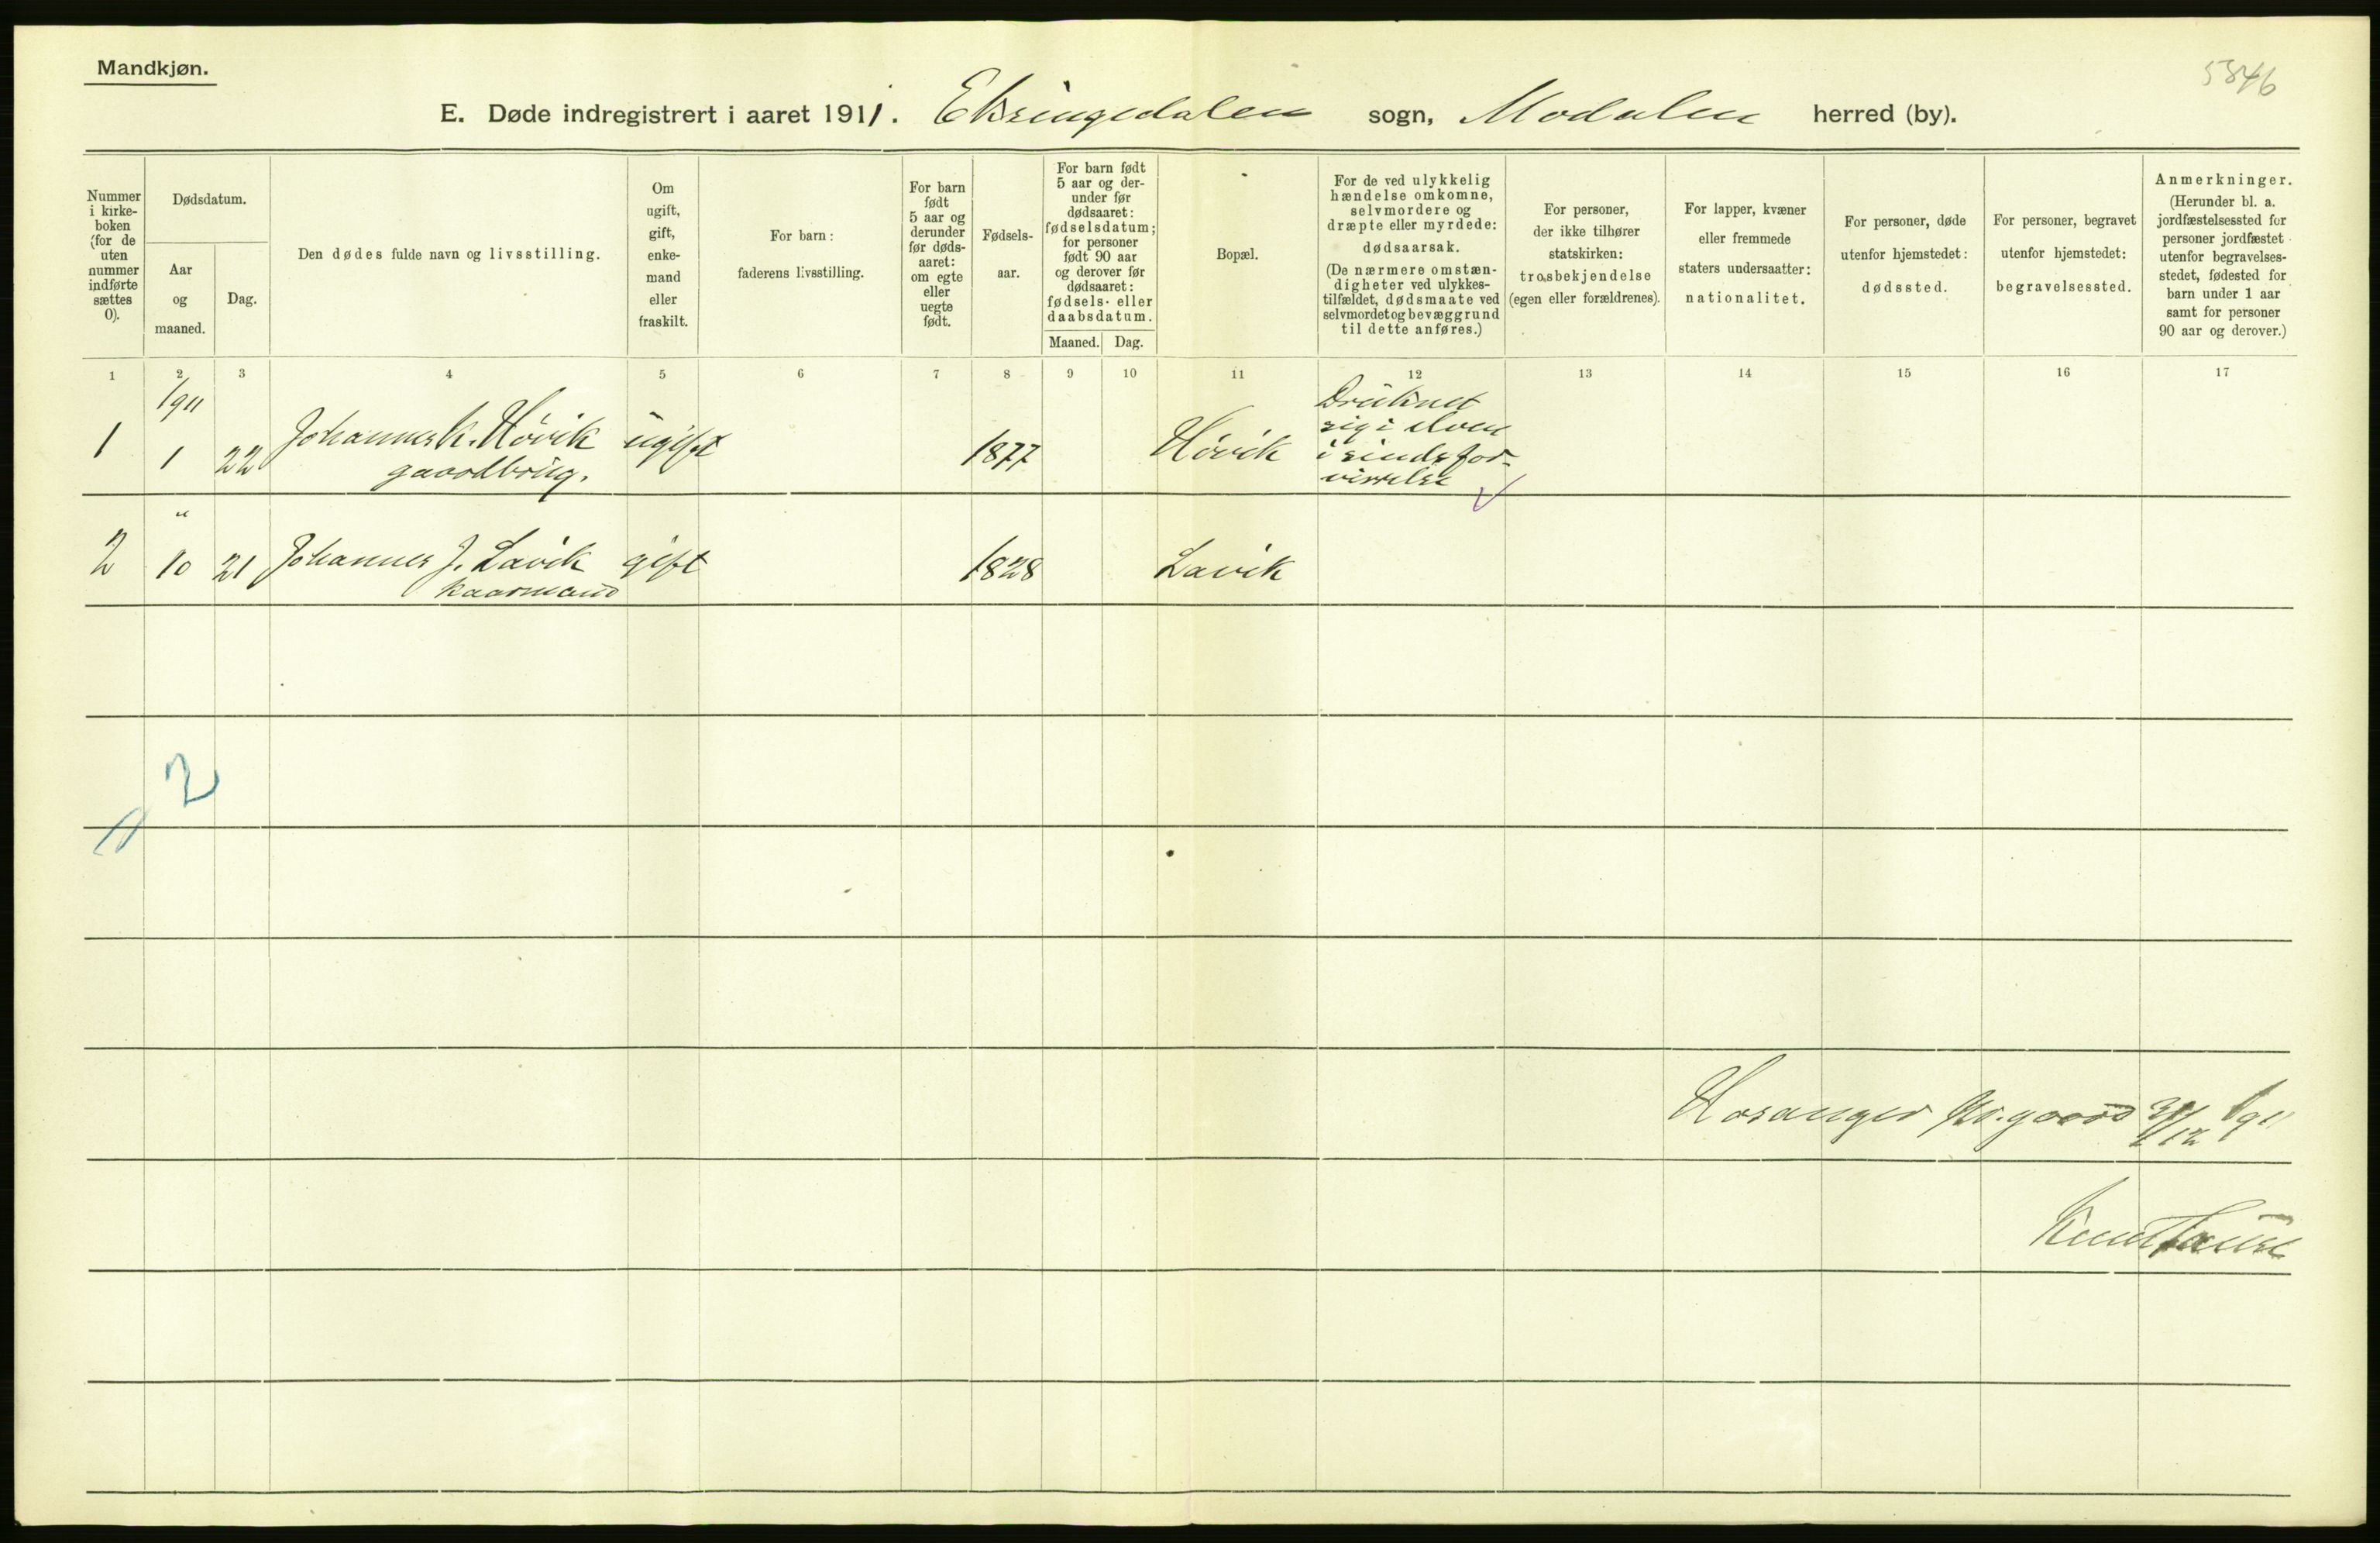 Mandkjøn.
5846
E. Døde indregistrert i aaret 1911. Eksingedalen sogn, Modalen herred (by).
Nummer i kirke-
boken
(for de
uten
nummer
indførte
sættes
0).
Dødsdatum.
Aar
og
maaned.
Dag.
Den dødes fulde navn og livsstilling.
Om
ugift,
gift,
enke-
mand
eller
fraskilt.
For barn:
faderens livsstilling.
For barn
født
5 aar og
derunder
før døds-
aaret:
om egte
eller
uegte
født.
Fødsels-
aar.
For barn født
5 aar og der-
under før
dødsaaret:
fødselsdatum;
for personer
født 90 aar
og derover før
dødsaaret:
fødsels- eller
daabsdatum.
Maaned. Dag.
Bopæl.
For de ved ulykkelig
hændelse omkomne,
selvmordere og
dræpte eller myrdede:
dødsaarsak.
(De nærmere omstæn-
digheter ved ulykkes-
tilfældet, dødsmaate ved
selvmordet og bevæggrund
til dette anføres.)
For personer,
der ikke tilhører
statskirken:
trosbekjendelse
(egen eller forældrenes).
For lapper, kvæner
eller fremmede
staters undersaatter:
nationalitet.
For personer, døde
utenfor hjemstedet:
dødssted.
For personer, begravet
utenfor hjemstedet:
begravelsessted.
Anmerkninger.
(Herunder bl. a.
jordfæstelsessted for
personer jordfæstet
utenfor begravelses-
stedet, fødested for
barn under 1 aar
samt for personer
90 aar og derover.)
1 2 3 4 5 6 7 8 9 10 11 12 13 14 15 16 17
1911
1 1 22 Johannes K. Høvik ugift 1877 Høvik
gaardbrug.
Druknet
sig i elven
i sindsfor-
virrelse
"
2 10 21 Johannes J. Lavik gift 1828 Lavik
Kaarmand
2
Hosanger Pr.gaard 31/12 1911